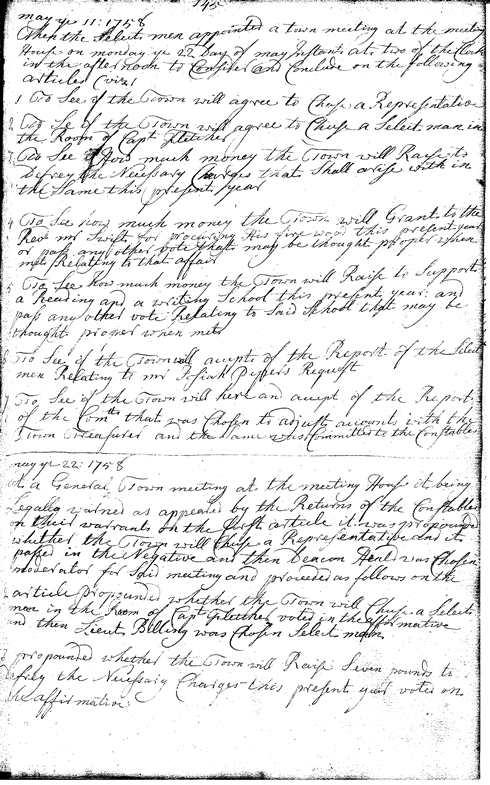 145
may ye 11: 1758
When the Select men appointed a town meeting at the meeting
House on monday ye 22 Day of may Instant at two of the Clock
in the afternoon to Consider and Conclude on the following
articles (viz)
1 To See if the Town will agree to Chuse a Representative
2 To Se if the Town will agree to Chuse a Select man in
the Room of Capt Fletcher
3 To See how much money the Town will Raise to
Defrey the Necessary Charges that Shall arise with in
the Same this present year
4 To See how much money the Town will Grant to the
Revd mr Swift for procuring His fire wood this present year
or pass any other vote that may be thought proper when
met Relating to that affair
5 To See how much money the Town will Raise to Support
a Reading and a writing School this present year: and
pass any other vote Relating to Said School that may be
thought proper when met
6 To See if the Town will accept of the Report of the Select
men Relating to mr Josiah Pipers Request
7 To See if the Town will here and accept of the Report
of the Comtt that was Chosen to adjust accounts with the
Town Treasurer and the Same was Committed to the Constables
may ye 22: 1758
at a General Town meeting at the meeting House it being
Legally warned as appeared by the Returns of the Constables
on their warrants on the first article it was propounded
whether the Town will Chuse a Representative and it
passed in the Negative and then Deacon Heald was Chosen
moderator for Said meeting and proceeded as follows on the
2 article propounded whether the Town will Chuse a Select
man in the Room of Capt Fletcher voted in the affirmative
and then Lieut Billing was Chosen Select man
3 propounded whether the Town will Raise Seven pounds to
defrey the Necessary Charges this present year voted on
the affirmative